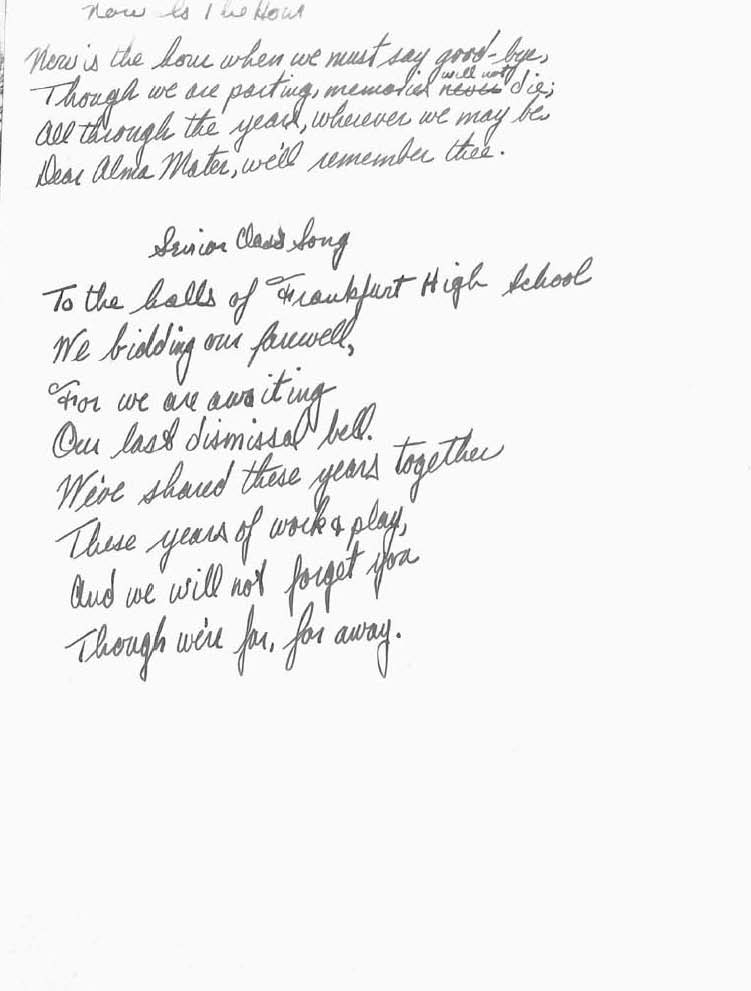 Now Is The Hour
Now is the hour when we must say good-bye,
will not
Though we are parting, memories never die;
All through the years, wherever we may be
Dear Alma Mater, we'll remember thee.
Senior Class Song
To the halls of Frankfurt High School
We bidding our farewell,
For we are awaiting
Our last dismissal bell.
We've shared these years together
These years of work & play,
And we will not forget you
Though we're far, far away.